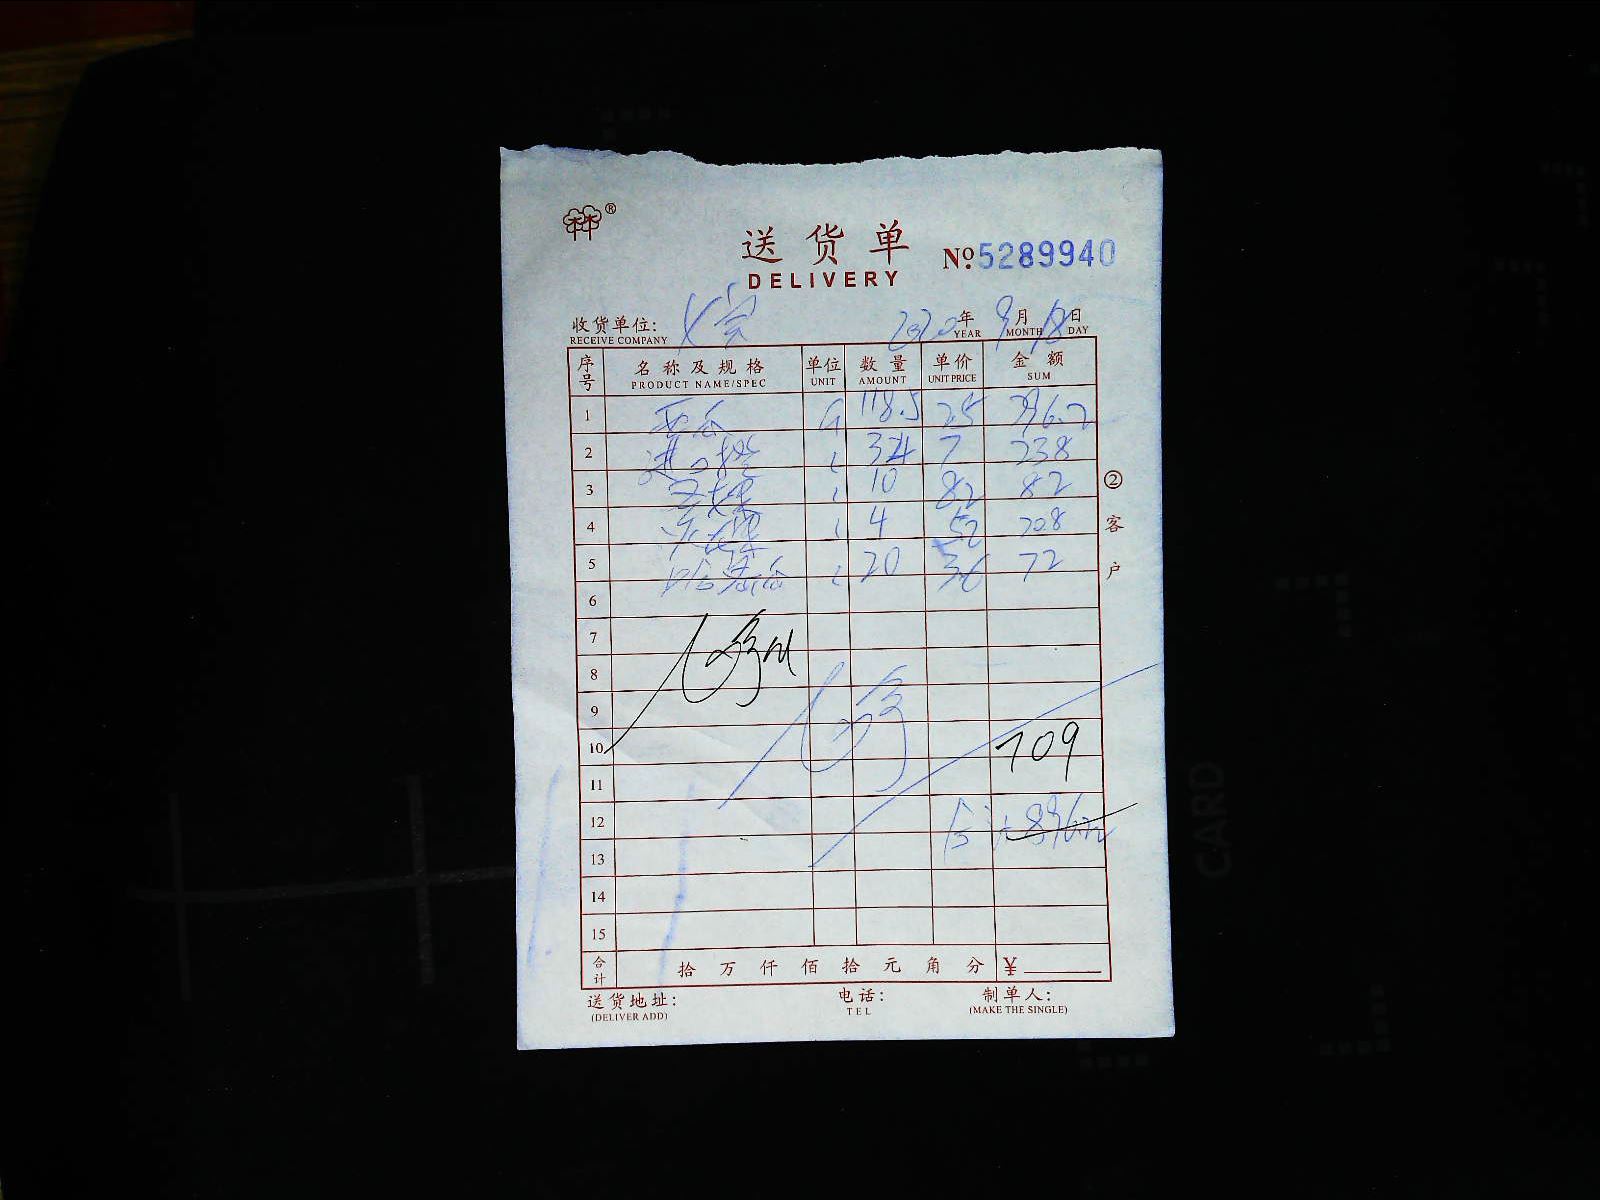 ®
送货单
DELIVERY
No.5289940
收货单位:
RECEIVE COMPANY
2020年 9月 18日
YEAR MONTH DAY
序号 名称及规格 单位 数量 单价 金额
PRODUCT NAME/SPEC UNIT AMOUNT UNIT PRICE SUM
1 西瓜 118.5 2.5
2 34 7 238
3 10 8.2 82
4 4 52 208
5 哈密瓜 20 3.6 72
6
7
8
9
10 709
11
12 合计
13
14
15
合计 拾 万 仟 佰 拾 元 角 分 ¥
送货地址: 电话: 制单人:
(DELIVER ADD) TEL (MAKE THE SINGLE)
②客户
CARD